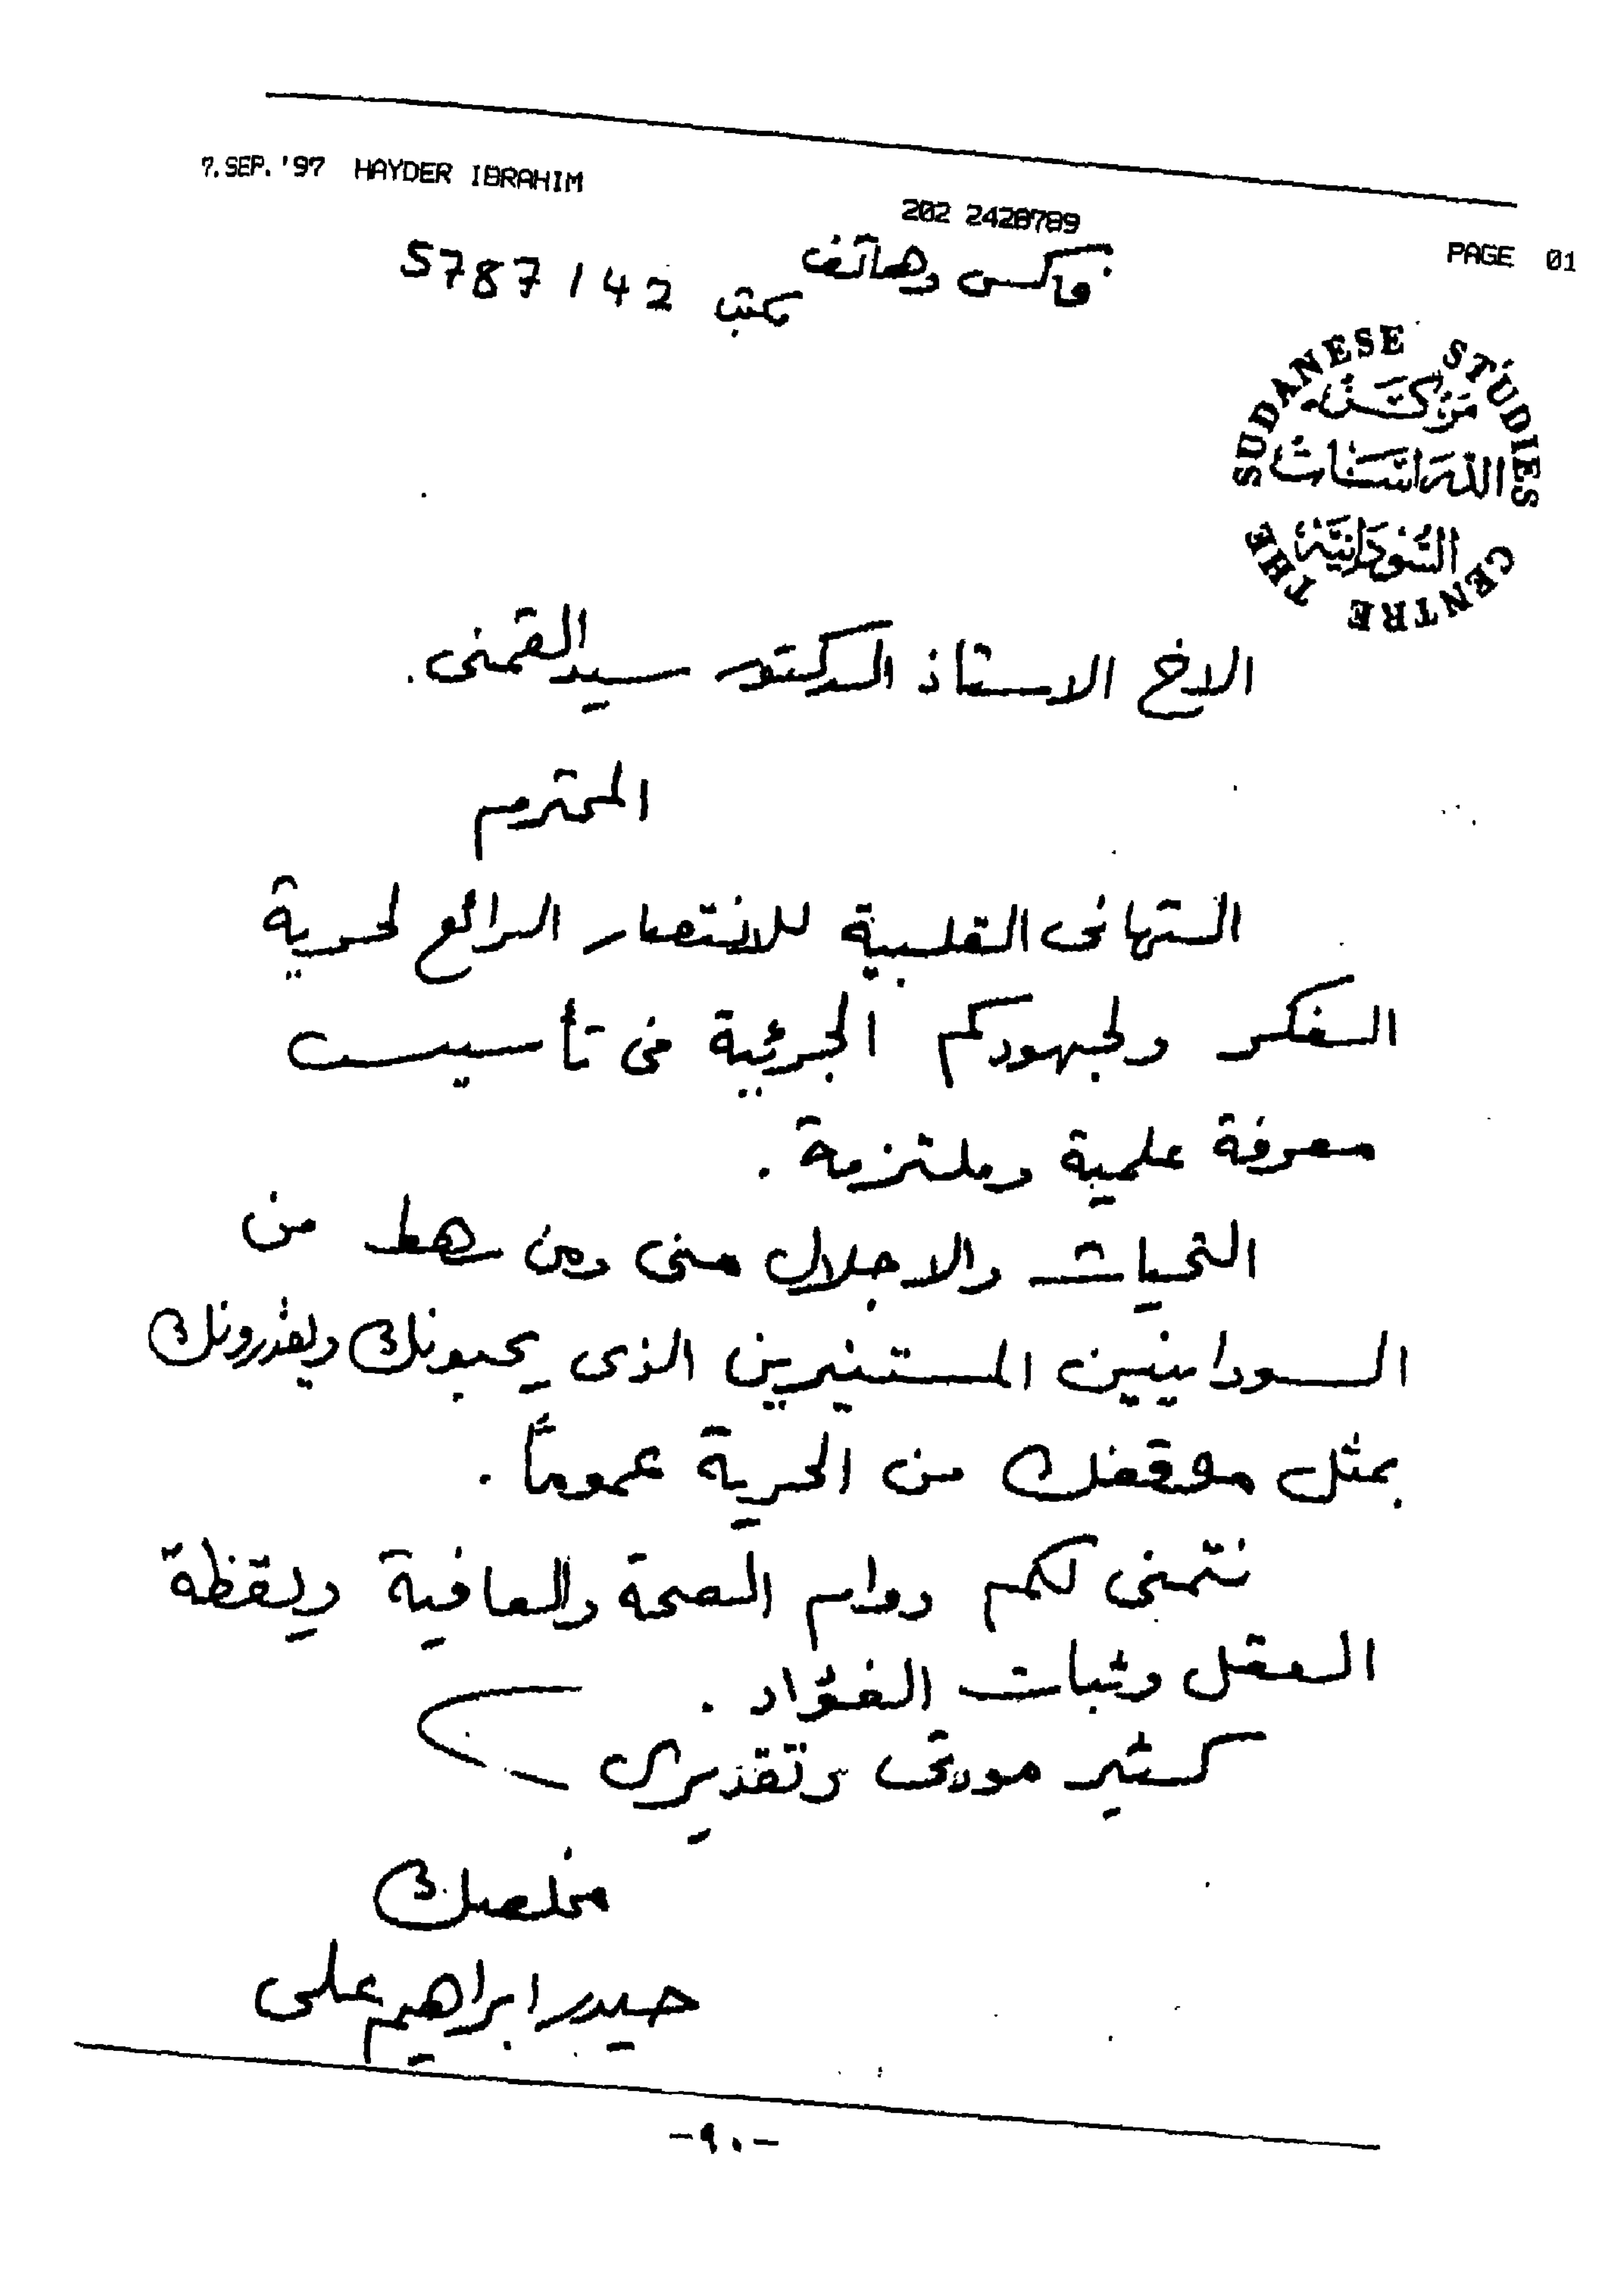 7.SEP.'97 HAYDER IBRAHIM 202 2428789 PAGE 01
فاكس وهاتف مكتب 5787142
SUDANESE STUDIES
مركز
الدراسات
السودانية
THE CENTRE
الاخ الاستاذ الدكتور سيد القمنى.
المحترم
التهانى القلبية للانتصار الرائع لحرية
الفكر ولجهودكم الجرئية فى تأسيس
معرفة علمية وملتزمة.
التحيات والاجلال منى ومن رهط من
السودانيين المستنيرين الذى يحبونك ويقدرونك
بمثل موقفك من الحرية عموماً.
نتمنى لكم دوام الصحة والعافية ويقظة
العقل وثبات الفؤاد.
كثير مودتى وتقديرى
مخلصك
حيدر ابراهيم على
-٩٠-